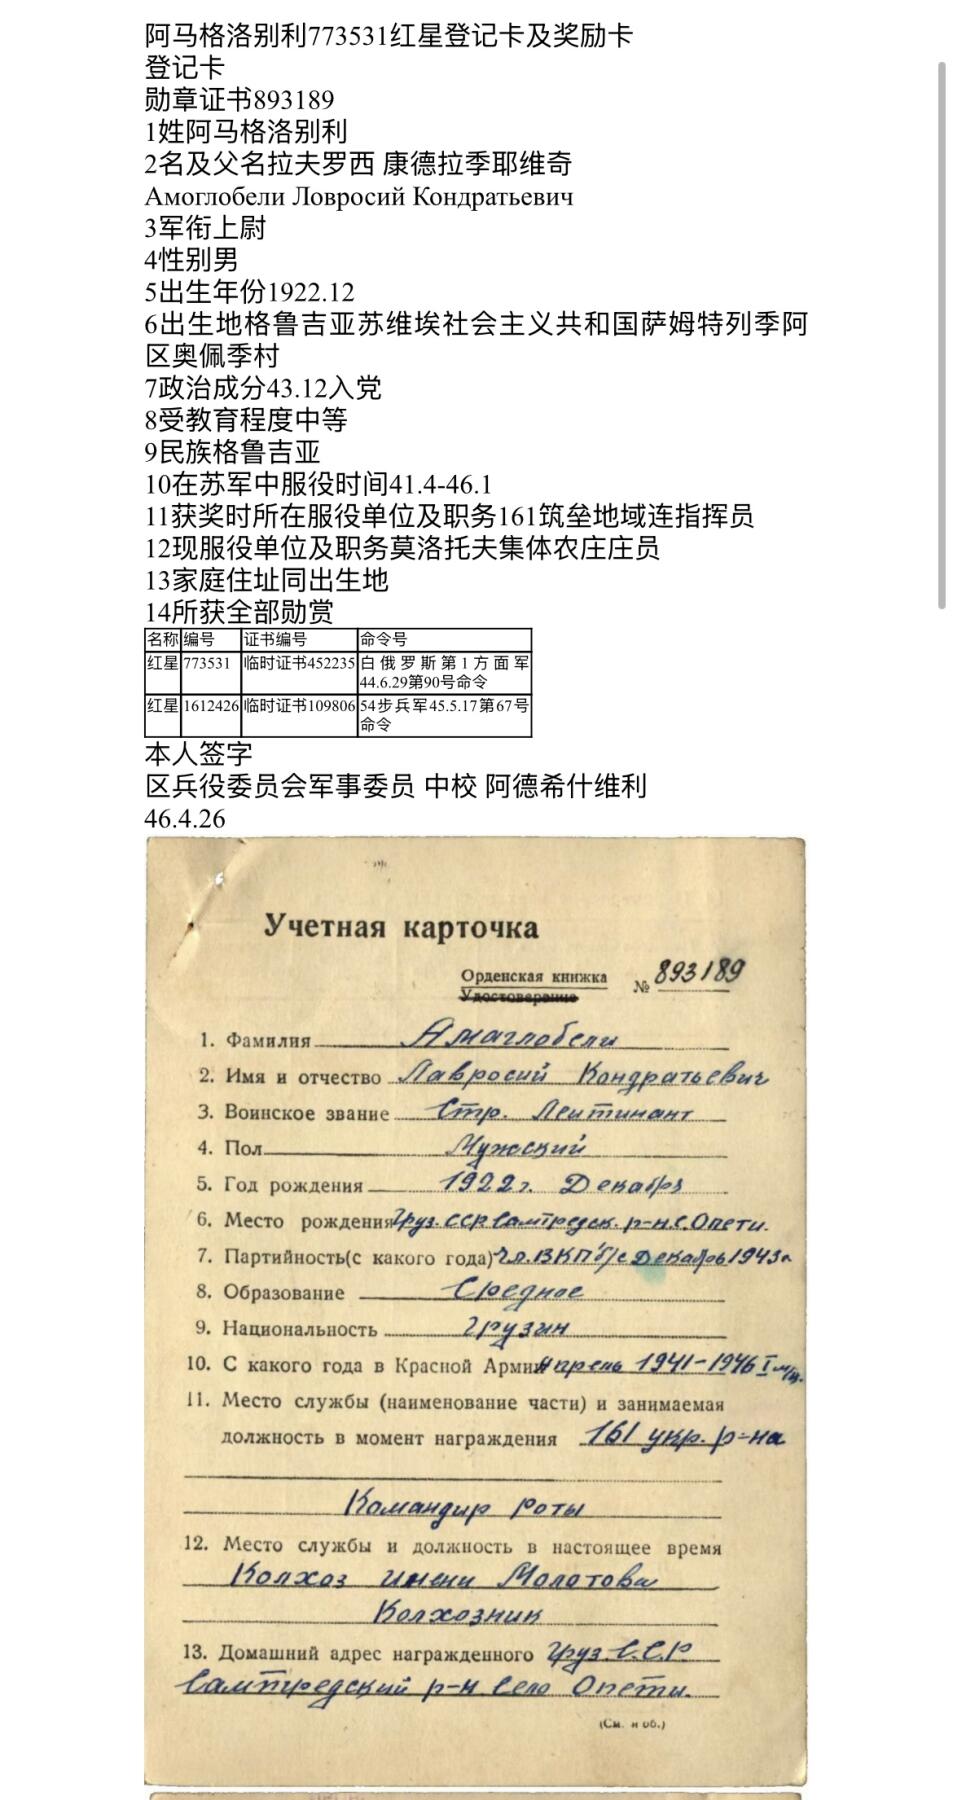 阿马格洛别利773531红星登记卡及奖励卡
登记卡
勋章证书893189
1姓阿马格洛别利
2名及父名拉夫罗西 康德拉季耶维奇
Амоглобели Ловросий Кондратьевич
3军衔上尉
4性别男
5出生年份1922.12
6出生地格鲁吉亚苏维埃社会主义共和国萨姆特列季阿
区奥佩季村
7政治成分43.12入党
8受教育程度中等
9民族格鲁吉亚
10在苏军中服役时间41.4-46.1
11获奖时所在服役单位及职务161筑垒地域连指挥员
12现服役单位及职务莫洛托夫集体农庄庄员
13家庭住址同出生地
14所获全部勋赏
名称 编号 证书编号 命令号
红星 773531 临时证书452235 白俄罗斯第1方面军
44.6.29第90号命令
红星 1612426 临时证书109806 54步兵军45.5.17第67号
命令
本人签字
区兵役委员会军事委员 中校 阿德希什维利
46.4.26
Учетная карточка
Орденская книжка № 893189
Удостоверение
1. Фамилия Амаглобели
2. Имя и отчество Лавросий Кондратьевич
3. Воинское звание Стр. Леитинант
4. Пол Мужский
5. Год рождения 1922г. Декабрь
6. Место рождения Груз. ССР Самтредск. р-н.с.Опети.
7. Партийность(с какого года) Чл.ВКП/б/с Декабрь 1943г
8. Образование Среднее
9. Национальность Грузин
10. С какого года в Красной Армии Апрель 1941-1946 I м/ц.
11. Место службы (наименование части) и занимаемая
должность в момент награждения 161 укр. р-на
Командир роты
12. Место службы и должность в настоящее время
Колхоз имени Молотова
Колхозник
13. Домашний адрес награжденного Груз.С.С.Р
Самтредский р-н Село Опети.
(См. н об.)